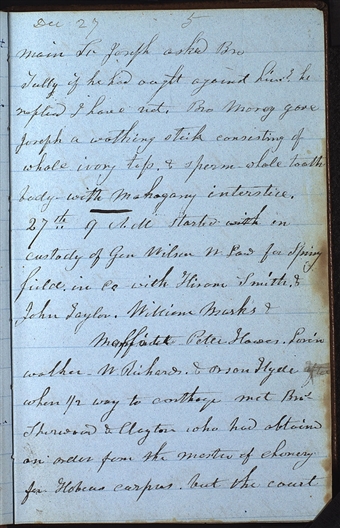 Dec 27 5
main Sir Joseph asked Bro
Tully if he had ought against him. he
replied I have not. Bro Morey gave
Joseph a walking stick consisting of
whole ivory top. & sperm whale tooth
body with Mahogany interstice.
27th 9 A.M. started in
custody of Gen Wilson W Law for Spring
field. in co with Hiram Smith. &
John Taylor. William Marks &
Peter Hawes. Lorin
walker. W Richards. & orson Hyde after
when 1/2 way to carthage met Brn
Sherwood & Clayton who had obtaind
an order from the master of chancry
for Habeus corpus. but the court